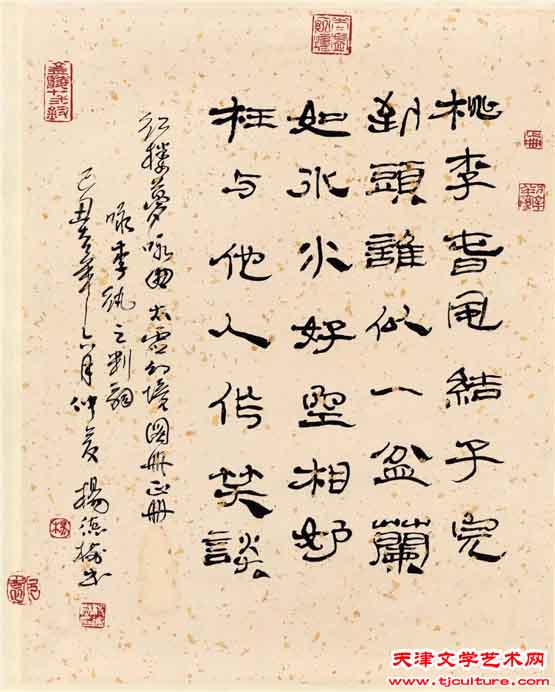 桃李春風結子完
到頭誰似一盆蘭
如冰水好空相妒
枉与他人作笑談
红楼夢咏曲太虚幻境圖册正册
咏李纨之判詞
己丑年六月仲夏 楊书
金陵十二釵
天津文学艺术网
www.tjculture.com